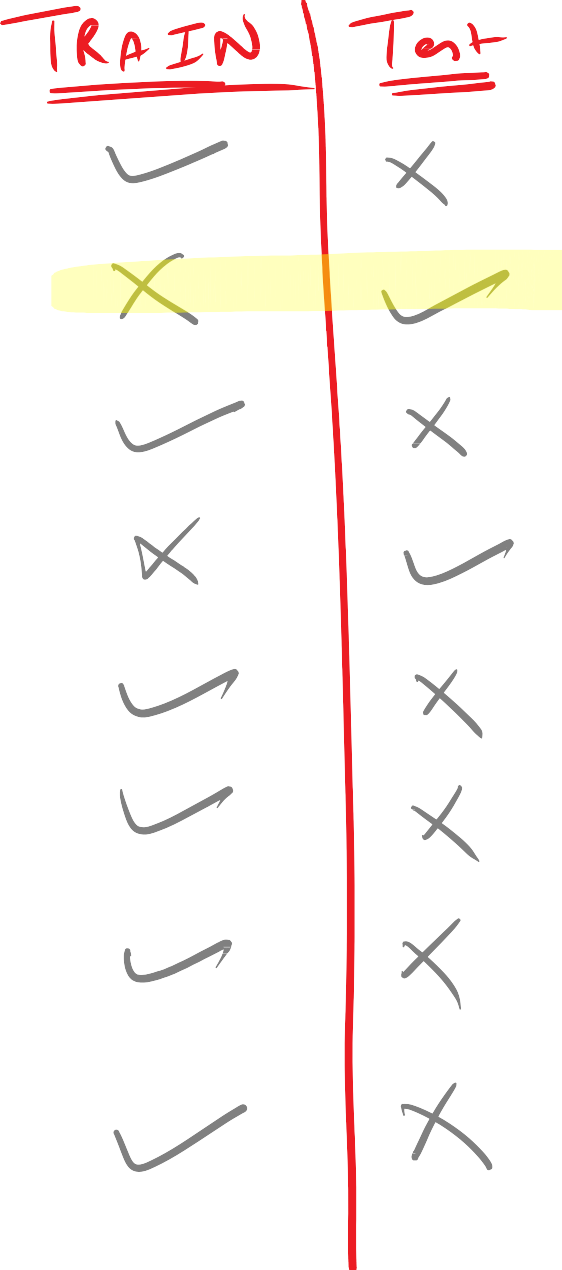 TRAIN Test
✓ ✗
✗ ✓
✓ ✗
✗ ✓
✓ ✗
✓ ✗
✓ ✗
✓ ✗